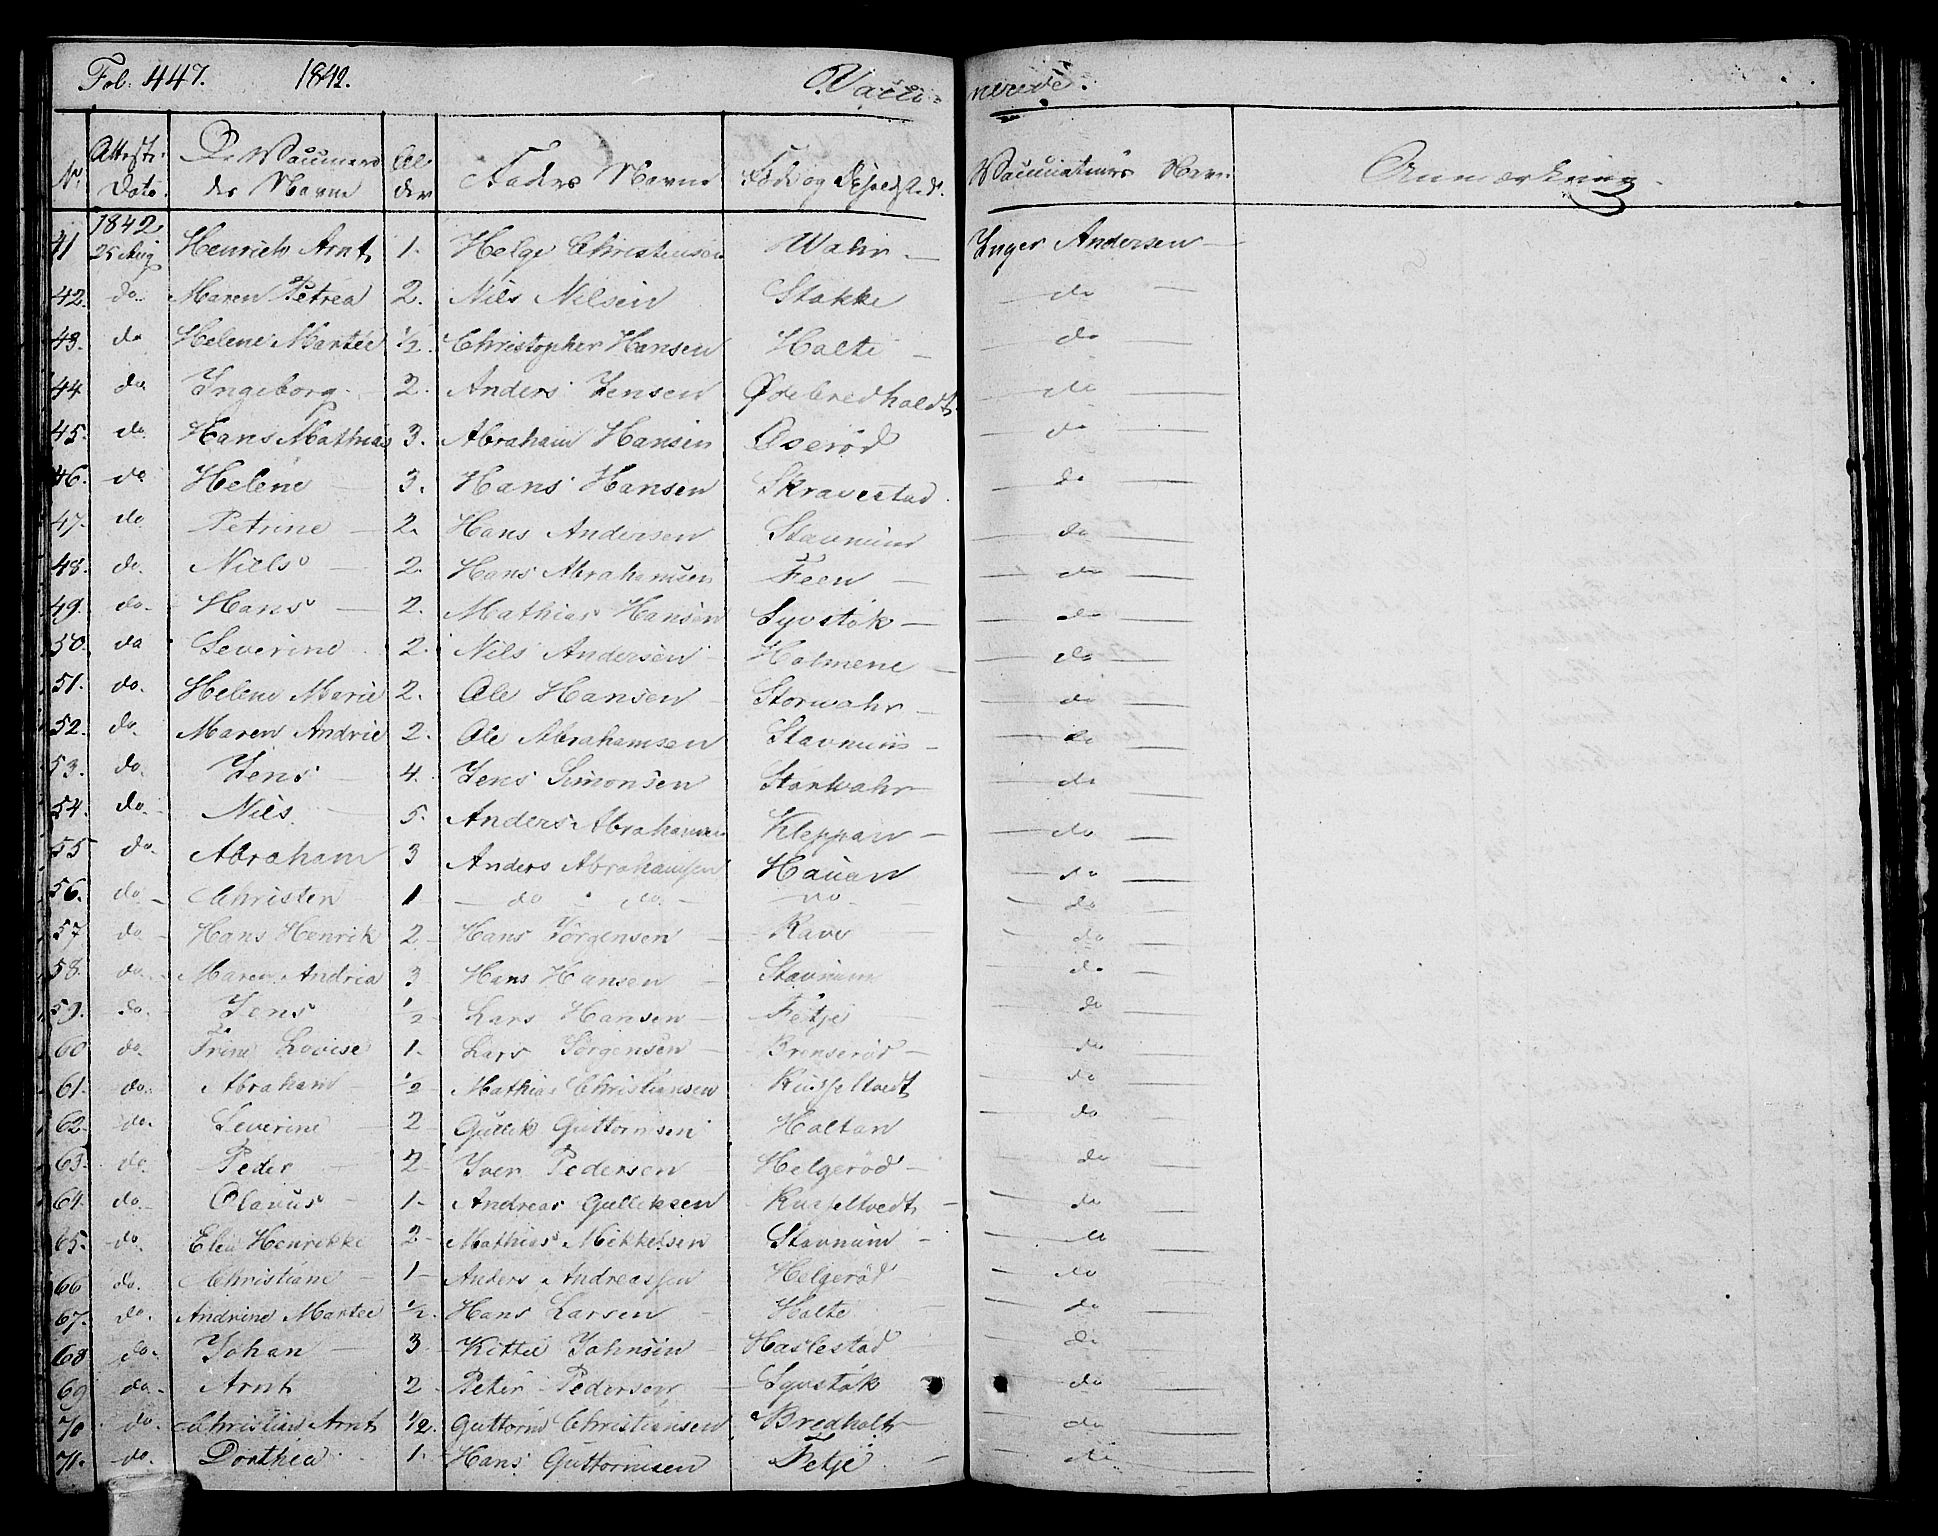 Fol. 447. 1842. Vacci- nerede.
No Attest. Dato. De Vaccineredes Navne Alder Faders Navne Føde og Opholds. St. Vaccinateurs Navn. Anmærkning.
1842
41 25 Aug Henrich Arnt 1. Helge Christensen Wahr — Inger Andersen —
42. do. Maren Petrea 2. Nils Nilsen Stokke — do —
43. do Helene Martée 1/2. Christopher Hansen Holte — do —
44 do Ingeborg 2. Anders Jensen Ødebredholdt — do —
45. do. Hans Mathias 3. Abraham Hansen Øserød — do —
46. do Helene — 3. Hans Hansen Skravestad. — do —
47. do Petrine — 2. Hans Andersen Stavnum — do —
48. do. Niels — 2. Hans Abrahamsen Feen — — do —
49. do. Hans — 2. Mathias Hansen Lyvstøk — — do —
50. do Severine 2. Nils Andersen Holmene — — do —
51. do. Helene Marie 2. Ole Hansen Storwahr — — do —
52. do. Maren Andrie 2. Ole Abrahamsen Stavnum — — do —
53. do. Jens — 4. Jens Simonsen Storwahr — — do —
54. do. Nils — 5. Anders Abrahamsen Kleppan — — do —
55 do. Abraham 3 Anders Abrahamsen Hauan — do —
56. do. Christen 1 — do do. — do — do —
57 do Hans Henrik 2 Hans Jørgensen — Rave — do —
58. do. Maren Andria 3 Hans Hansen — Stavnum — do —
59. do. Jens 1/2 Lars Hansen — Fetje — do —
60 do. Trine Lovise 1. Lars Jørgensen — Brenserød — — do —
61. do. Abraham — 1/2 Mathias Christiansen Russeltvedt — do —
62. do. Severine 2 Gullik Guttormsen Holtan — do —
63. do. Peder — 2 Iver Pedersen Helgerød — — do —
64. do. Olavus — 1 Andreas Gulliksen Russeltvedt — — do —
65. do. Elen Henrikke 2 Mathias Mikkelsen Stavnum — — do —
66 do. Christiane — 1 Anders Andreassen Helgerød — do —
67. do. Andrine Martee 1/2. Hans Larsen — Holte — — do —
68 do. Johan — 3 Kittil Johnsen — Haslestad — do —
69 do. Arnt 2 Peter Pedersen — Lyvstøk — do —
70 do. Christian Arnt 1/2. Guttorm Christiansen Bredholt — — do —
71. do. Dorthea 1. Hans Guttormsen Fetje — — do —